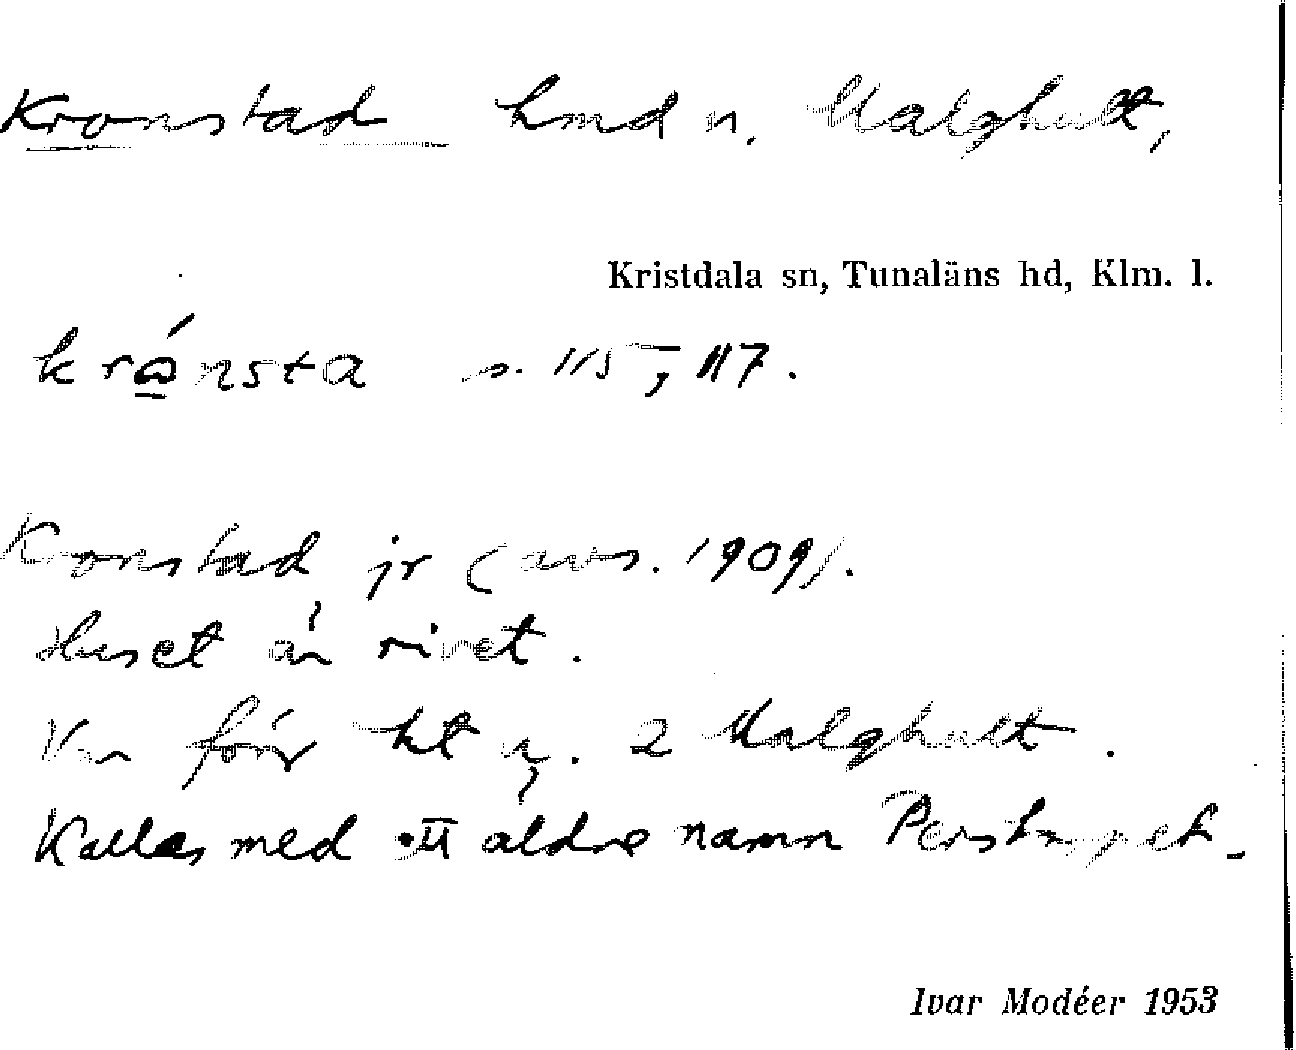 Kronstad hmd u. Malghult,
Kristdala sn, Tunaläns hd, Klm. l.
krånsta s. 115, 117.
Kronstad jr (avs. 1909).
Huset är rivet.
Var förr ht u. 2 Malghult.
Kallas med ett äldre namn Perstorpet.
Ivar Modéer 1953